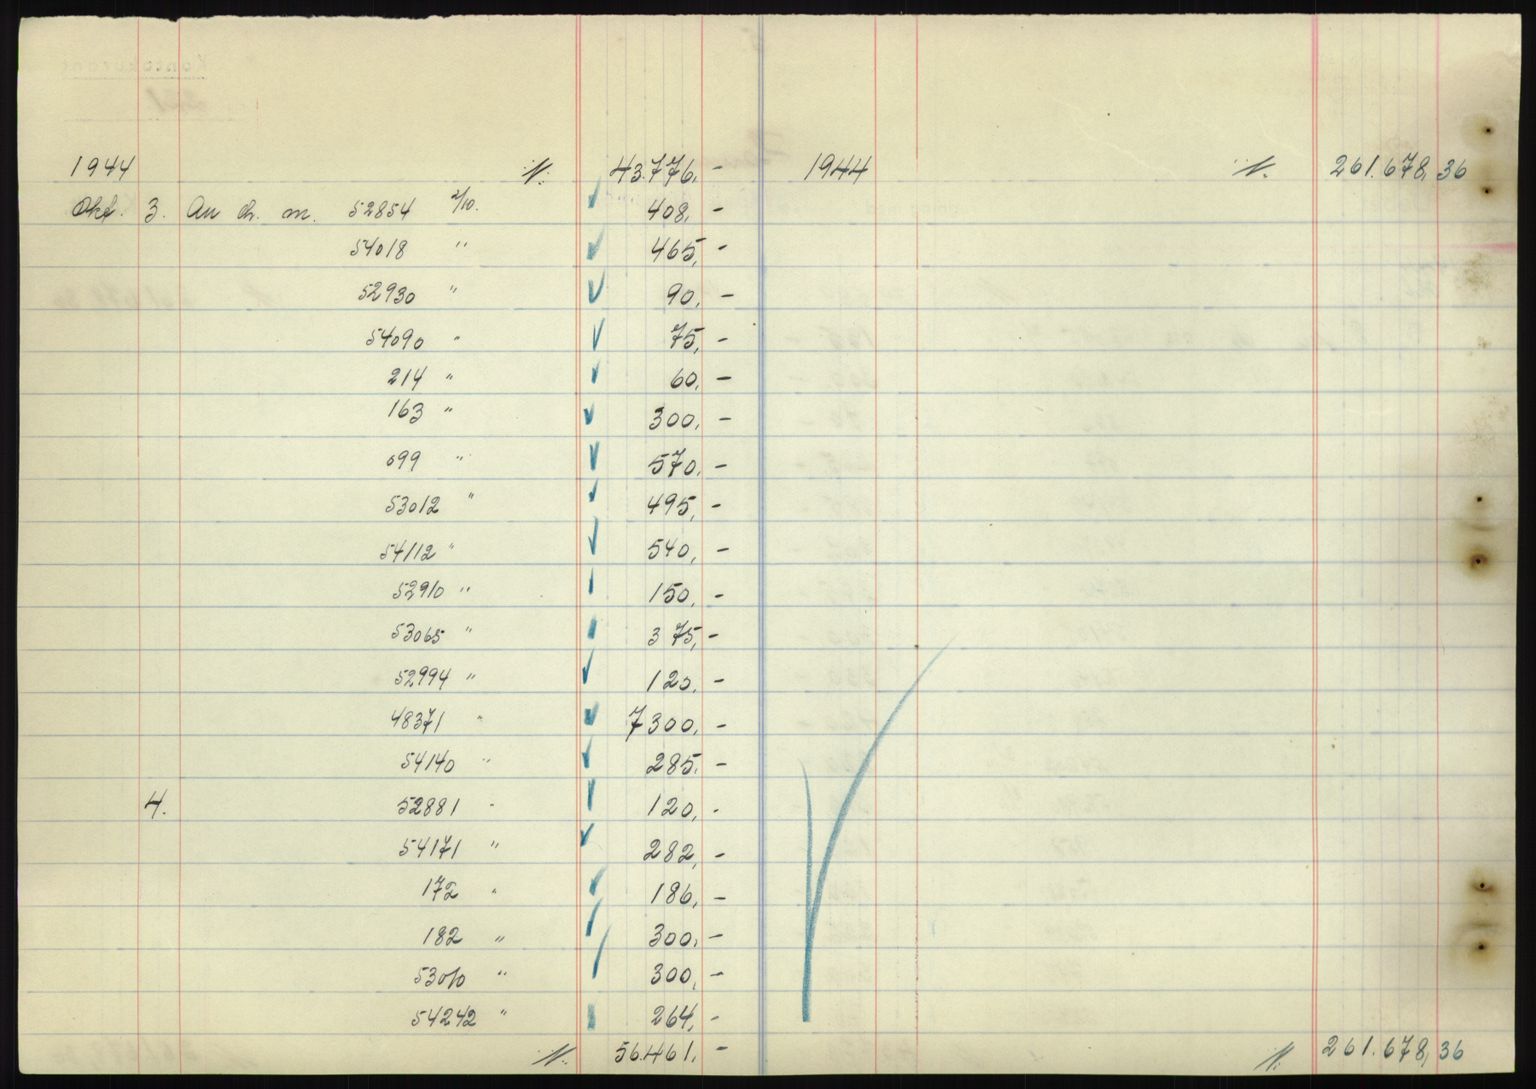 1944 N. 43.776,-
Okt. 3. An ch. m. 52854 2/10. 408,-
54018 " 465,-
52930 " 90,-
54090 " 75,-
214 " 60,-
163 " 300,-
099 " 570,-
53012 " 495,-
54112 " 540,-
52910 " 150,-
53065 " 375,-
52994 " 120,-
48371 " 7300,-
54140 " 285,-
4. 52881 " 120,-
54171 " 282,-
172 " 186,-
182 " 300,-
53010 " 300,-
54242 " 264,-
N. 56.461,-
1944 N. 261.678,36
N. 261.678,36